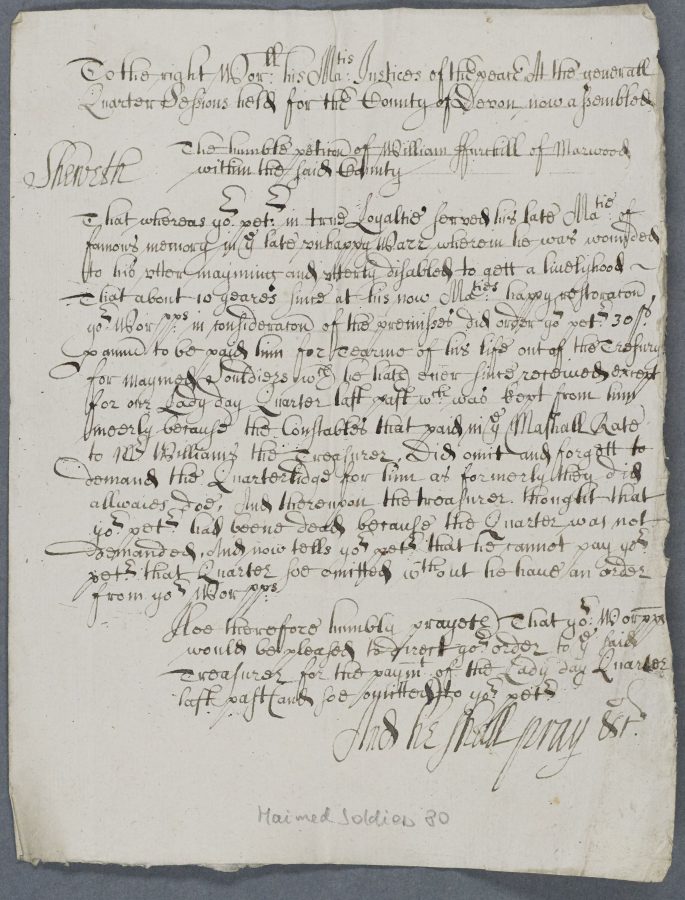 To the right Wor:ll his Ma:tis Justices of the peace At the generall
Quarter Sessions held for the County of Devon now assembled
The humble peticon of William ffurchill of Marwood
within the said County
Sheweth
That whereas yor: petr: in true Loyaltie served his late Ma:tie of
famous memory in ye late unhappy Warr wherein he was wounded
to his utter mayming and utterly disabled to gett a livelyhood ~
That about 10 yeares since at his now Ma:ties happy restoracon
yor: Worpps: in consideracon of the premisses did order yor: petr: 30s
p annu to be paid him for Tearme of his life out of the Tresury
for maymed Souldiers wch: he hath ever since received except
for our Lady day Quarter last past wch: was kept from him
meerly because the Constables that paid in ye Marshall Rate
to Mr Williams the Treasurer, Did omit and forgett to
demand the Quarteridge for him as formerly they did
allwaies doe, And thereupon the treasurer thought that
yor: petr: had beene dead because the Quarter was not
demanded, And now tells yor: petr: that he cannot pay yor:
petr: that Quarter soe omitted wthout he have an order
from yor: Worpps:
Hee therefore humbly prayeth That yor: Worpps
would be pleased to direct yor: order to ye said
Treasurer for the paymt of the Lady day Quarter
last past (and soe omitted) to yor: petr:
And he shall pray &c:
Maimed Soldiers 30